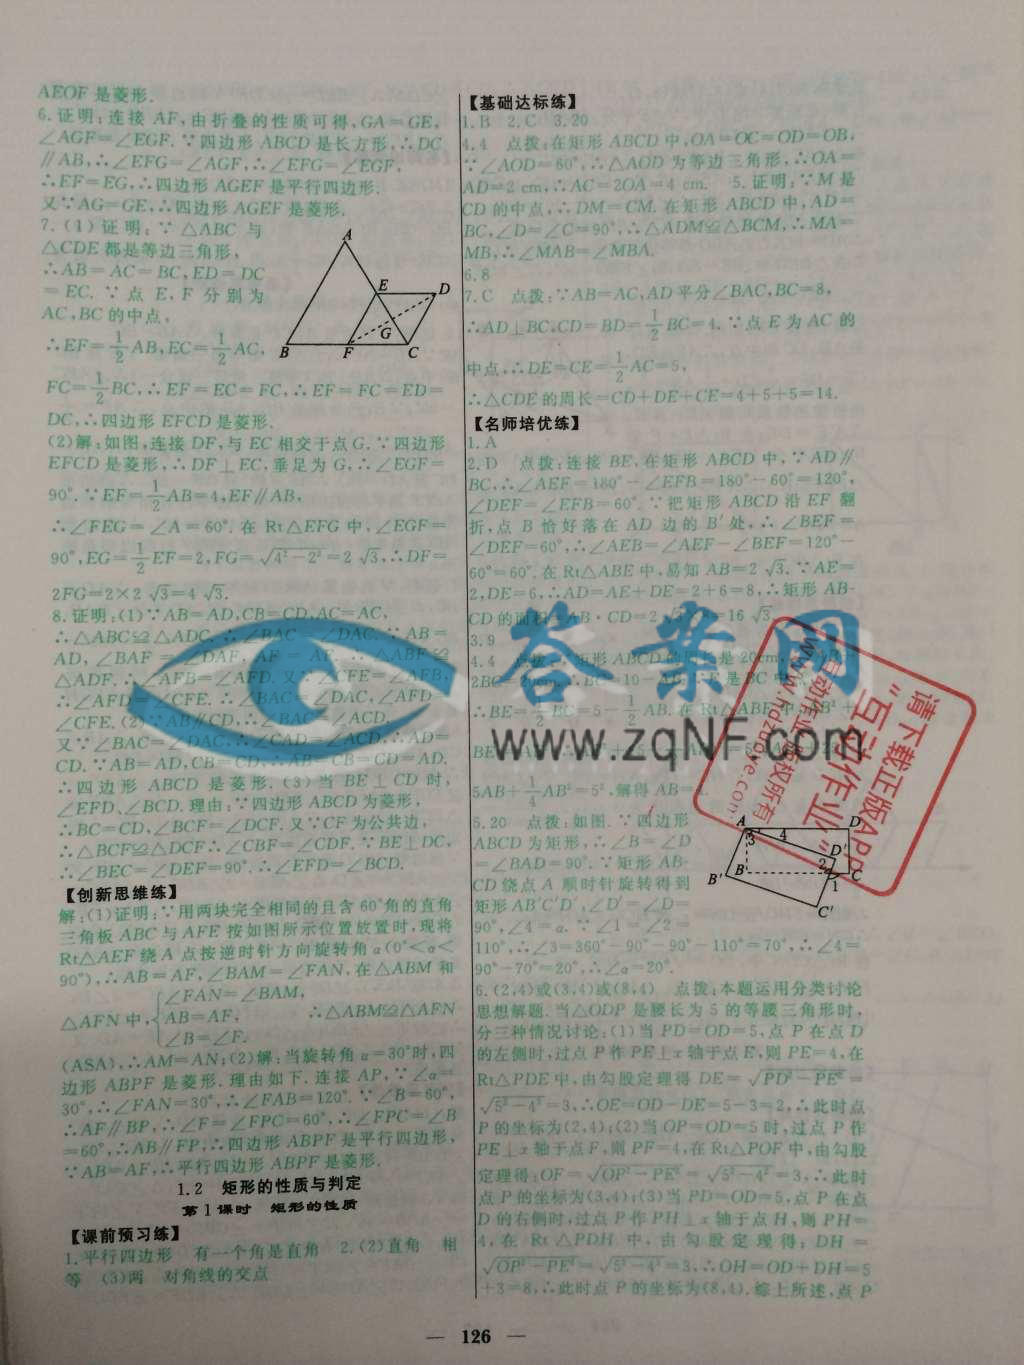 AEOF 是菱形.
6.证明:连接 AF,由折叠的性质可得,GA=GE,
∠AGF=∠EGF.∵四边形 ABCD 是长方形,∴DC
∥AB,∴∠EFG=∠AGF,∴∠EFG=∠EGF,
∴EF=EG,∴四边形 AGEF 是平行四边形.
又∵AG=GE,∴四边形 AGEF 是菱形.
7.(1)证明:∵△ABC 与
△CDE 都是等边三角形,
∴AB=AC=BC,ED=DC
=EC.∵点 E,F 分别为
AC,BC 的中点,
∴EF=1/2AB,EC=1/2AC,
A
E
D
G
B
F
C
FC=1/2BC,∴EF=EC=FC,∴EF=FC=ED=
DC,∴四边形 EFCD 是菱形.
(2)解:如图,连接 DF,与 EC 相交于点 G.∵四边形
EFCD 是菱形,∴DF⊥EC,垂足为 G,∴∠EGF=
90°.∵EF=1/2AB=4,EF∥AB,
∴∠FEG=∠A=60°.在 Rt△EFG 中,∠EGF=
90°,EG=1/2EF=2,FG=√(4²-2²)=2√3,∴DF=
2FG=2×2√3=4√3.
8.证明:(1)∵AB=AD,CB=CD,AC=AC,
∴△ABC≌△ADC,∴∠BAC=∠DAC.∵AB=
AD,∠BAF=∠DAF,AF=AF,∴△ABF≌
△ADF,∴∠AFB=∠AFD.又∵∠CFE=∠AFB,
∴∠AFD=∠CFE,∴∠BAC=∠DAC,∠AFD=
∠CFE.(2)∵AB∥CD,∴∠BAC=∠ACD,
又∵∠BAC=∠DAC,∴∠CAD=∠ACD,∴AD=
CD.∵AB=AD,CB=CD,∴AB=CB=CD=AD,
∴四边形 ABCD 是菱形.(3)当 BE⊥CD 时,
∠EFD=∠BCD.理由:∵四边形 ABCD 为菱形,
∴BC=CD,∠BCF=∠DCF.又∵CF 为公共边,
∴△BCF≌△DCF,∴∠CBF=∠CDF.∵BE⊥DC,
∴∠BEC=∠DEF=90°,∴∠EFD=∠BCD.
【创新思维练】
解:(1)证明:∵用两块完全相同的且含 60°角的直角
三角板 ABC 与 AFE 按如图所示位置放置时,现将
Rt△AEF 绕 A 点按逆时针方向旋转角 α(0°<α<
90°),∴AB=AF,∠BAM=∠FAN,在△ABM 和
△AFN 中,{∠FAN=∠BAM,
AB=AF, ∴△ABM≌△AFN
∠B=∠F.
(ASA),∴AM=AN;(2)解:当旋转角 α=30°时,四
边形 ABPF 是菱形.理由如下.连接 AP,∵∠α=
30°,∴∠FAN=30°,∴∠FAB=120°.∵∠B=60°,
∴AF∥BP,∴∠F=∠FPC=60°,∴∠FPC=∠B
=60°,∴AB∥FP,∴四边形 ABPF 是平行四边形,
∵AB=AF,∴平行四边形 ABPF 是菱形.
1.2 矩形的性质与判定
第1课时 矩形的性质
【课前预习练】
1.平行四边形 有一个角是直角 2.(2)直角 相
等 (3)两 对角线的交点
【基础达标练】
1.B 2.C 3.20
4.4 点拨:在矩形 ABCD 中,OA=OC=OD=OB,
∵∠AOD=60°,∴△AOD 为等边三角形,∴OA=
AD=2 cm,∴AC=2OA=4 cm. 5.证明:∵M 是
CD 的中点,∴DM=CM.在矩形 ABCD 中,AD=
BC,∠D=∠C=90°,∴△ADM≌△BCM,∴MA=
MB,∴∠MAB=∠MBA.
6.8
7.C 点拨:∵AB=AC,AD 平分∠BAC,BC=8,
∴AD⊥BC,CD=BD=1/2BC=4.∵点 E 为 AC 的
中点,∴DE=CE=1/2AC=5,
∴△CDE 的周长=CD+DE+CE=4+5+5=14.
【名师培优练】
1.A
2.D 点拨:连接 BE,在矩形 ABCD 中,∵AD∥
BC,∴∠AEF=180°-∠EFB=180°-60°=120°,
∠DEF=∠EFB=60°.∵把矩形 ABCD 沿 EF 翻
折,点 B 恰好落在 AD 边的 B′处,∴∠BEF=
∠DEF=60°,∴∠AEB=∠AEF-∠BEF=120°-
60°=60°.在 Rt△ABE 中,易知 AB=2√3.∵AE=
2,DE=6,∴AD=AE+DE=2+6=8,∴矩形 AB-
CD 的面积=AB·CD=2√3×8=16√3.
3.9
4.4 点拨:∵矩形 ABCD 的周长是 20cm,∴2AB+
2BC=20cm.∴BC=10-AB.∵E 是 BC 中点,
∴BE=1/2BC=5-1/2AB.在 Rt△ABE 中,AB²+
5AB+1/4AB²=5²,解得 AB=4.
5.20 点拨:如图.∵四边形
ABCD 为矩形,∴∠B=∠D
=∠BAD=90°.∵矩形 AB-
CD 绕点 A 顺时针旋转得到
矩形 AB′C′D′,∠D′=∠D=
90°,∠4=α.∵∠1=∠2=
110°,∴∠3=360°-90°-90°-110°=70°,∴∠4=
90°-70°=20°,∴∠α=20°.
A
D
3
4
D′
2
B
C
B′
1
C′
6.(2,4)或(3,4)或(8,4) 点拨:本题运用分类讨论
思想解题.当△ODP 是腰长为 5 的等腰三角形时,
分三种情况讨论:(1)当 PD=OD=5,点 P 在点 D
的左侧时,过点 P 作 PE⊥x 轴于点 E,则 PE=4,在
Rt△PDE 中,由勾股定理得 DE=√(PD²-PE²)=
√(5²-4²)=3,∴OE=OD-DE=5-3=2,∴此时点
P 的坐标为(2,4);(2)当 OP=OD=5 时,过点 P 作
PE⊥x 轴于点 F,则 PF=4,在 Rt△POF 中,由勾股
定理得:OF=√(OP²-PE²)=√(5²-4²)=3,∴此时
点 P 的坐标为(3,4);(3)当 PD=OD=5,点 P 在点
D 的右侧时,过点 P 作 PH⊥x 轴于点 H,则 PH=
4,在 Rt△PDH 中,由勾股定理得:DH=
√(OP²-PE²)=√(5²-4²)=3,∴OH=OD+DH=5
+3=8,∴此时点 P 的坐标为(8,4).综上所述,点 P
— 126 —
答案网
www.zqNF.com
请下载正版APP
"互动作业"
互动作业 版权所有
www.hdzuoye.com